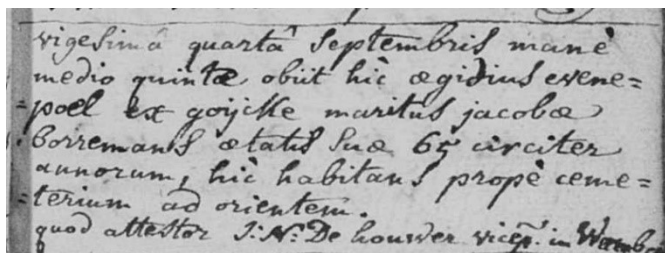 vigesimâ quartâ Septembris manè
medio quintæ obiit hìc ægidius evene=
=poel ex goijcke maritus jacobæ
borremans ætatis suæ 65 circiter
annorum, hìc habitans propè ceme=
=terium ad orientem.
quod attestor J: N: De houwer vicep: in